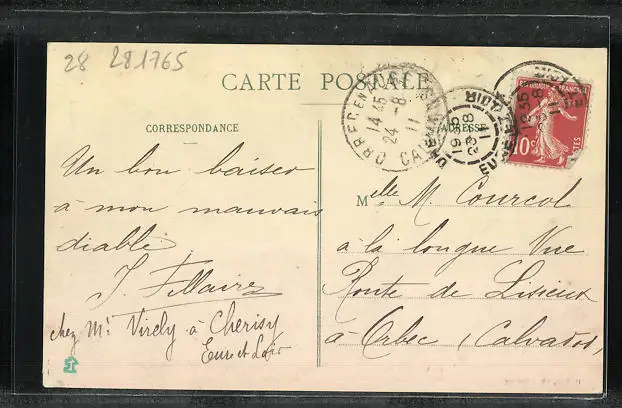 28 281765
CARTE POSTALE
CORRESPONDANCE
ADRESSE
Un bon baiser
à mon mauvais
diable
chez Mr Virely à Cherisy
Eure et Loir
Melle M. Courcol
à la longue Vue
Route de Lisieux
à Orbec (Calvados)
14 45
24 -8
11
19 35
23 8
11
REPUBLIQUE FRANÇAISE
10c
POSTES